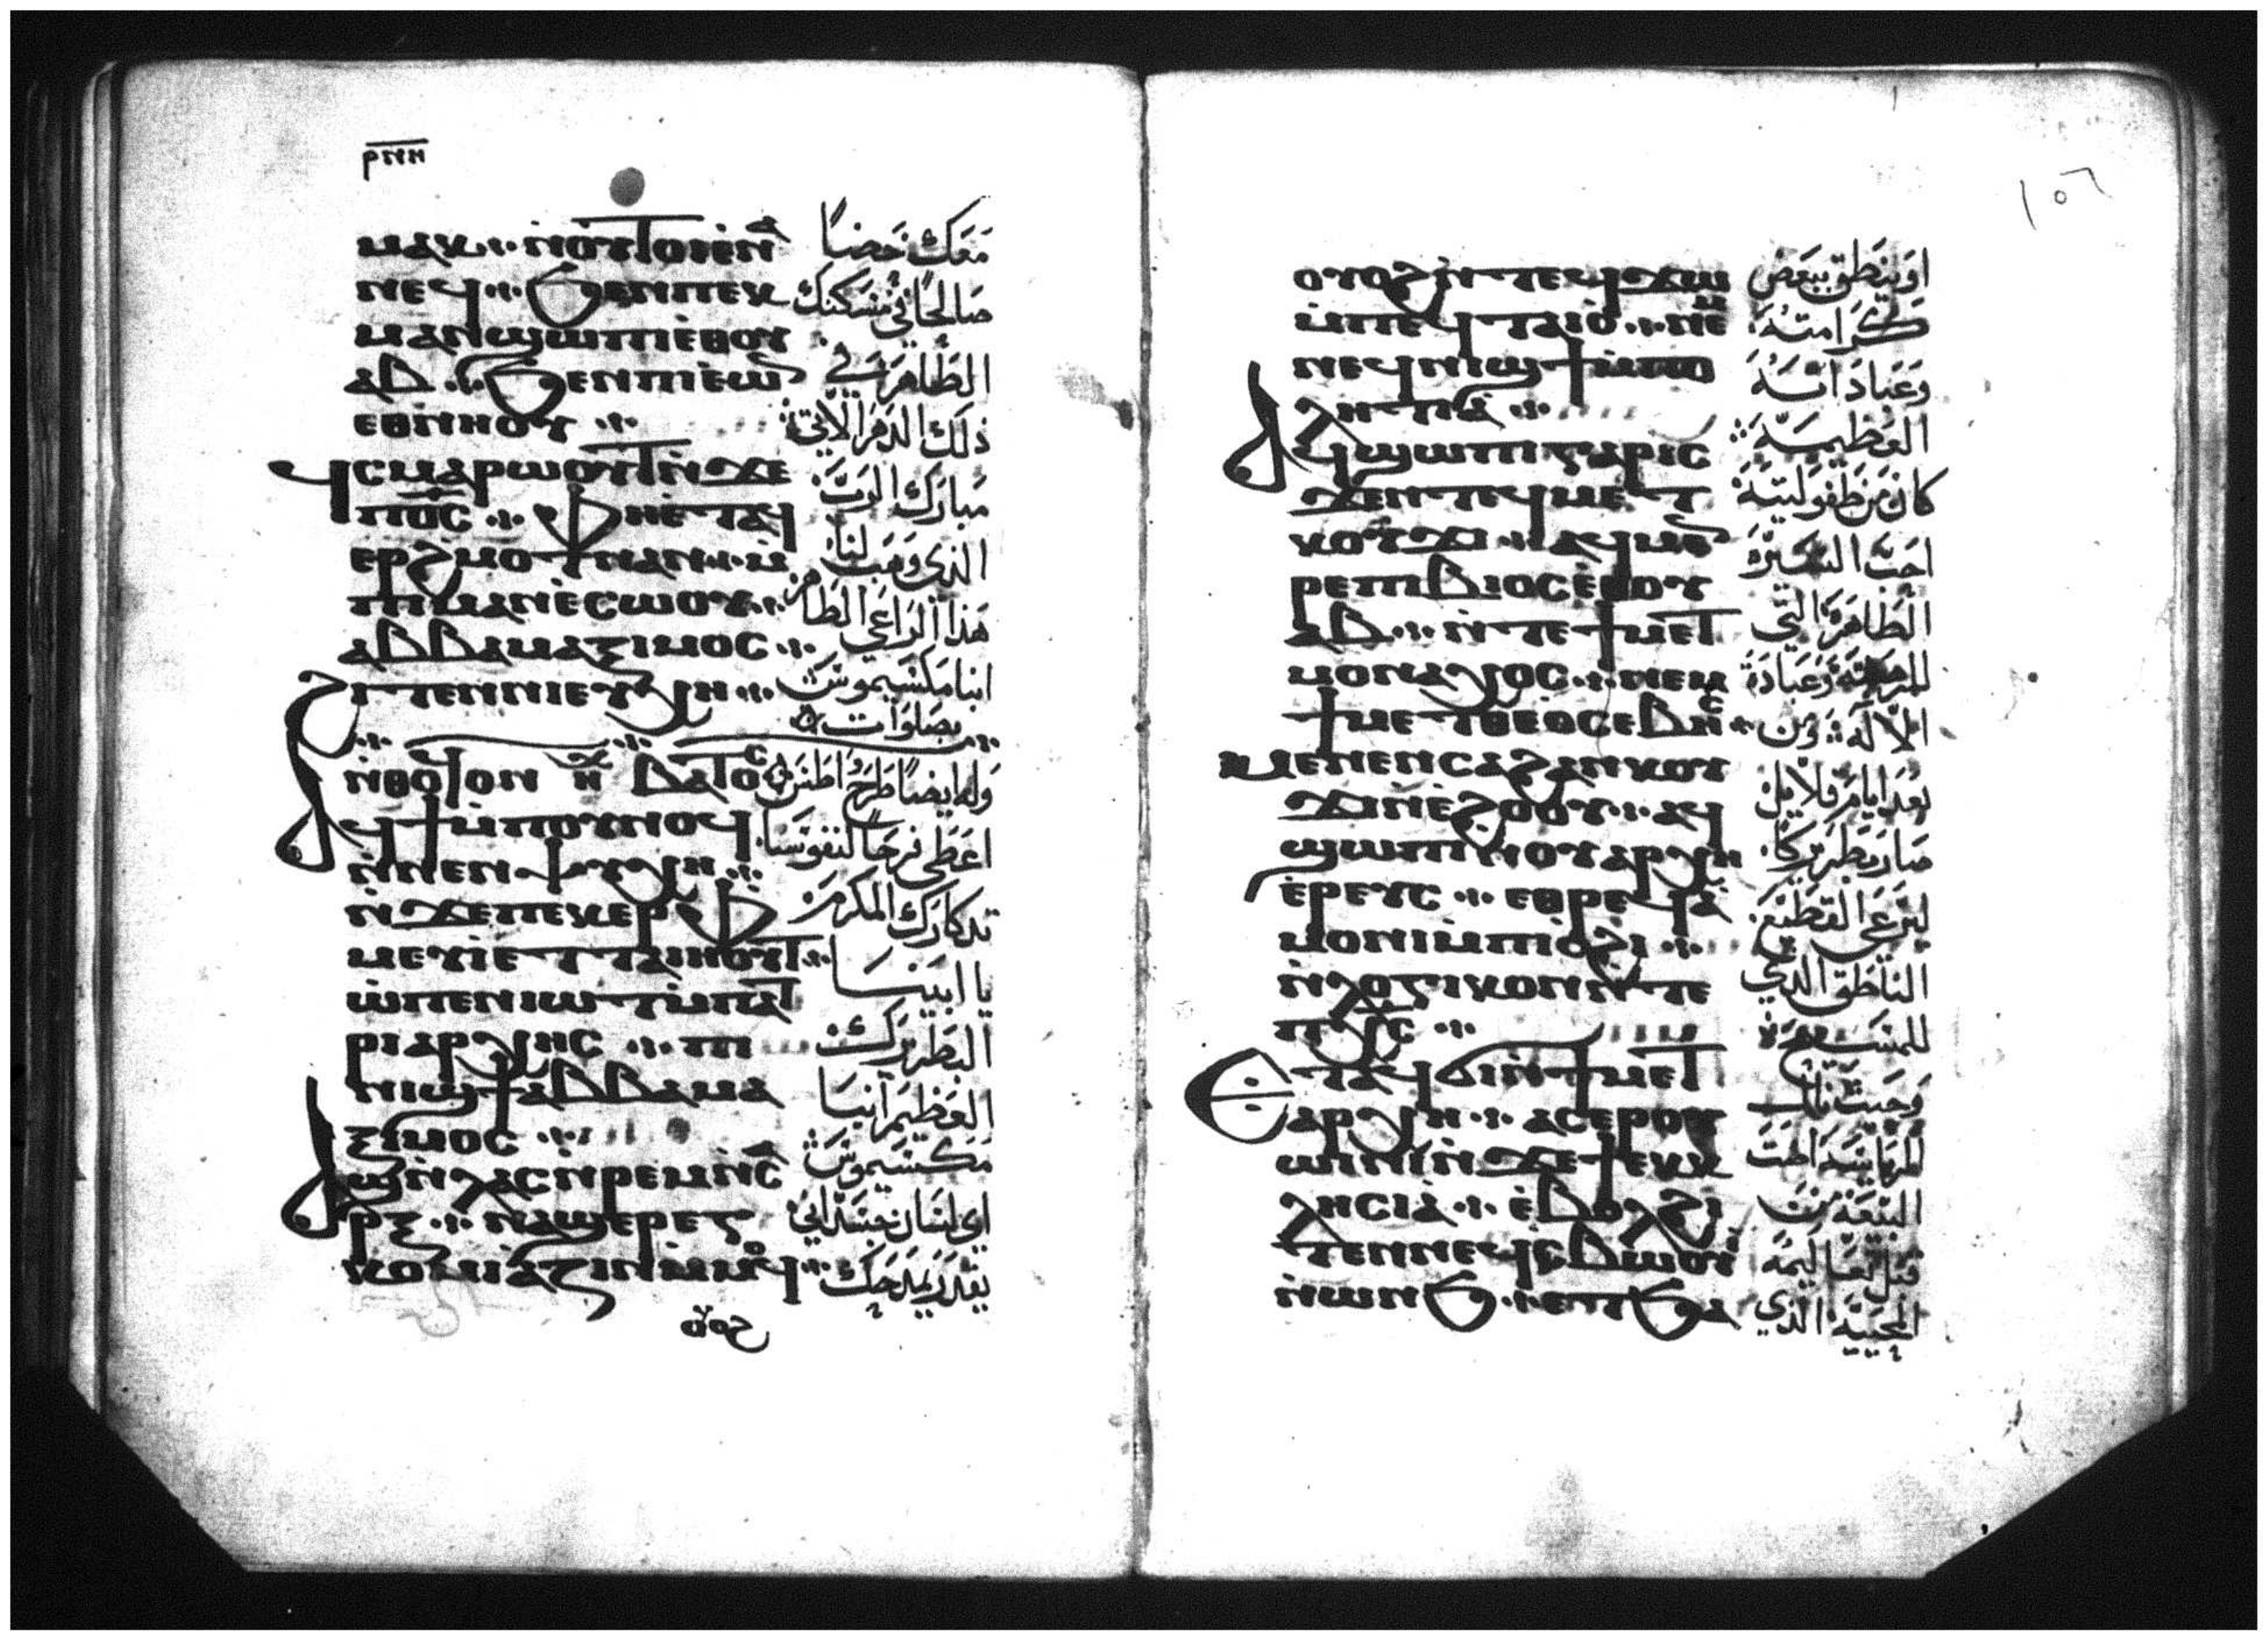 ⲣⲛⲏ
ⲙⲁⲕ ⲛⲟⲩⲧⲟⲓⲉ̀ⲛⲁ
ⲛⲉϥ ⁘ ϧⲉⲛⲡⲉⲕ
ⲙⲁⲛϣⲱⲡⲓⲉ̀ⲑⲟⲩ
ⲁⲃ ⁘ ϧⲉⲛⲡⲓⲉ̀ⲱⲛ
ⲉⲑⲛⲏⲟⲩ ⁘
ϥⲥⲙⲁⲣⲱⲟⲩⲧⲛ̀ϫⲉ
ⲡⲟ̅ⲥ̅ ⁘ ⲫⲏⲉ̀ⲧⲁϥ
ⲉⲣϩⲙⲟⲧⲛⲁⲛ ⁘ ⲙ̀
ⲡⲓⲙⲁⲛⲉ̀ⲥⲱⲟⲩ ⁘
ⲁⲃⲃⲁⲙⲁⲝⲓⲙⲟⲥ ⁘
ϩⲓⲧⲉⲛⲛⲓⲉⲩⲭⲏ ⁘
ⲛ̀ⲑⲟϥⲟⲛ ⲏⲭ ⲃⲁⲧⲟⲥ
ⲁϥϯⲙ̀ⲡⲟⲩⲛⲟϥ
ⲛ̀ⲛⲉⲛⲯⲩⲭⲏ ⁘
ⲛ̀ϫⲉⲡⲉⲕⲉⲣⲫ
ⲙⲉⲩⲓ̀ⲉⲧⲧⲁⲓⲏⲟⲩⲧ ⁘
ⲱ̀ⲡⲉⲛⲓⲱⲧⲙ̀ⲡⲁⲧ
ⲣⲓⲁⲣⲭⲏⲥ ⁘ ⲡⲓ
ⲛⲓϣϯⲁⲃⲃⲁⲙⲁ
ⲝⲓⲙⲟⲥ ⁘
ⲁϣⲛ̀ⲗⲁⲥⲛ̀ⲣⲉⲙⲛ̀ⲥⲁ
ⲣⲝ ⁘ ⲛⲁϣⲉⲣⲉⲅ
ⲕⲟⲙⲓⲁⲍⲓⲛⲙ̀ⲙⲟϥ
معك حضًا
صالحًا في مسكنك
الطاهر في
ذلك الدهر الاتي
مبارك الرب
الذي وهب لنا
هذا الراعي الطاهر
ابنا مكسيموس
بصلوات
وله ايضًا طرح واطس
اعطى فرحًا لنفوسنا
تدكارك المكرم
يا ابينا
البطريرك
العظيم انبا
مكسيموس
اي لسان جسداني
يقدر يمدحك
ⲟⲩⲟϩⲛ̀ⲧⲉϥϫⲱ
ⲙ̀ⲡⲉϥⲧⲁⲓⲟ̀ ⁘ ⲛⲉⲙ
ⲛⲉϥⲛⲓϣϯⲙ̀ⲡⲟ
ⲗⲏⲧⲓⲁ̀ ⁘
ⲁϥϣⲱⲡⲓⲅⲁⲣⲓⲥ
ϫⲉⲛⲧⲉϥⲙⲉⲧ
ⲕⲟⲩϫⲓ ⁘ ⲁϥⲙⲉⲛ
ⲣⲉⲡⲓⲃⲓⲟⲥⲉ̀ⲑⲟⲩ
ⲁⲃ ⁘ ⲛ̀ⲧⲉϯⲙⲉⲧ
ⲙⲟⲛⲁⲭⲟⲥ ⁘ ⲛⲉⲙ
ϯⲙⲉⲧⲑⲉⲟⲥⲉⲃⲏⲥ
ⲙⲉⲛⲉⲛⲥⲁϩⲁⲛⲕⲟⲩ
ϫⲓⲛⲉ̀ϩⲟⲟⲩ ⁘ ⲁϥ
ϣⲱⲡⲓⲛⲟⲩⲁⲣⲭⲏ
ⲉ̀ⲣⲉⲩⲥ ⁘ ⲉⲑⲣⲉϥⲁ̀
ⲙⲟⲛⲓⲙ̀ⲡⲓⲟ̀ϩⲓ ⁘
ⲛ̀ⲗⲟⲅⲓⲕⲟⲛⲛ̀ⲧⲉ
ⲡⲭ̅ⲥ̅ ⁘
ⲉⲧⲁϥϭⲓⲛ̀ϯⲙⲉⲧ
ⲁⲣⲭⲏ ⁘ ⲁⲥⲉⲣⲟⲩ
ⲱⲓⲛⲓⲛ̀ϫⲉϯⲉⲕⲕ
ⲗⲏⲥⲓⲁ̀ ⁘ ⲉ̀ⲃⲟⲗϩⲓ
ⲧⲉⲛⲛⲉϥⲥⲃⲱⲟⲩⲓ
ⲛ̀ⲱⲛϧ ⁘ ⲉⲧϧⲁ
او ينطق ببعض
كرامته
وعباداته
العظيمة
كان من طفوليته
احب السيرة
الطاهرة التي
للرهبنة وعبادة
الاله ومن
بعد ايام قلايل
صار بطريركًا
ليرعى القطيع
الناطق الذي
للمسيح
البيعة من
قبل تعاليمه
المحيية الذي